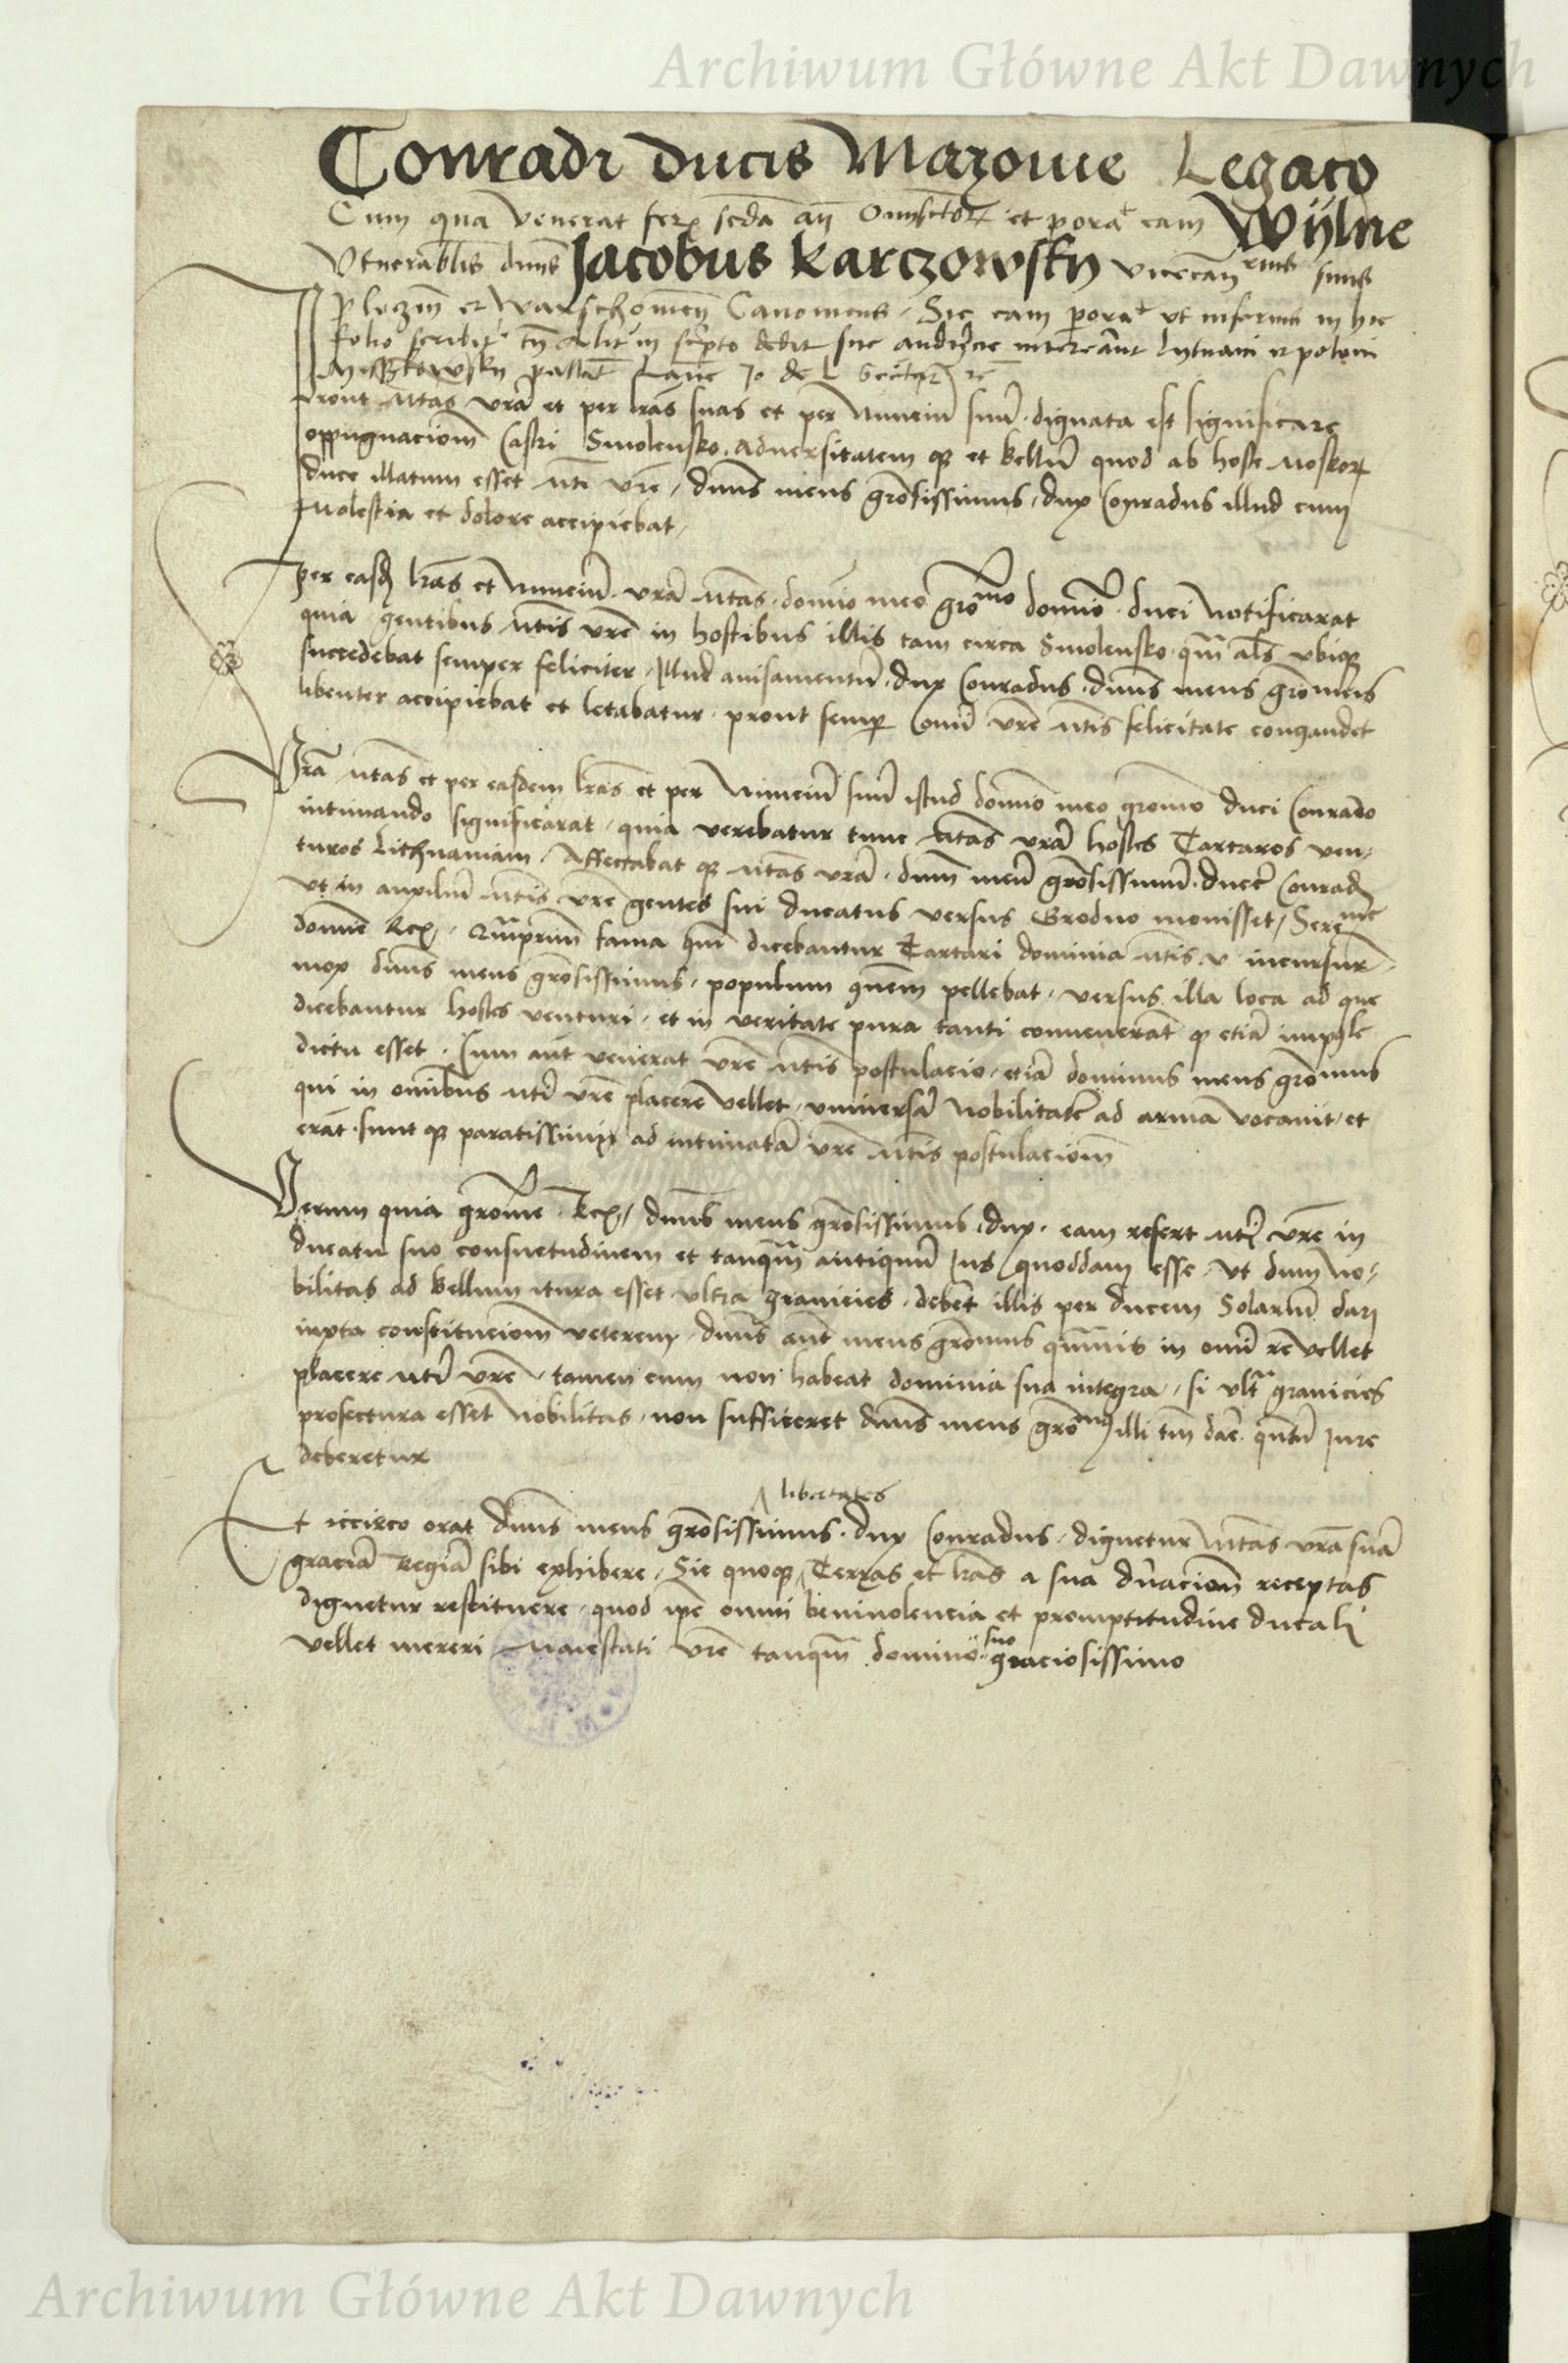 Archiwum Główne Akt Dawnych
Conradi Ducis Mazouie Legacō
Cum qua venerat ferʒ scdā an̄ Omīsctōrʒ et porāt eam Wÿlne
Venerablis dn̄s Jacobus Karczowsky vicecan rius suus
plozn̄ et Warschouien̄ Canonicus. Sic eam porāt ut inferius in hic
folio scribit tn̄ in scripto dedit sue audiēcie intererānt lytuani et poloni
Mÿsskowsky
Pront Mtas vrā et per lrās suas et per Nunciū suū dignata est significare
oppugnacionē Castri Smolensko, Aduersitatem qʒ et bellū quod ab hoste Moskorʒ
duce illatum esset Mti vrē, dn̄s meus grōsissimus, dux Conradus illud cum
Molestia et dolore accipiebat,
Per easdʒ lrās et Nunciū vrā Mtas domīo meo grōmo domīo duci Notificarat
quia gentibus Mtis vrē in hostibus illis tam circa Smolensko qʒ als vbiqʒ
succedebat semper feliciter, Illud auisamentū dux Conradus dn̄s meus grōmus
libenter accipiebat et letabatur, pront semp Comī vrē Mtis felicitate congaudet
Vrā Mtas et per easdem lrās et per Nunciū suū istud domīo meo grōmo duci Conrado
intimando significarat, quia verebatur tunc Mtas vrā hostes Tartaros ven-
turos Lithuaniam, Affectabat qʒ Mtas vrā, dnm̄ meū grōsissimū ducē Conradʒ
vt in auxiliū Mtis vrē gentes sui ducatus versus Grodno mouisset, Serenme
domīe Rex, Qāmprimū fama qua dicebantur Tartari dominia Mtis v incursurʒ
mox dn̄s meus grōsissimus, populum pellebat, versus illa loca ad que
dicebantur hostes venturi, et in veritate pura tanti conuenerāt qʒ etiā
dictu esset, Cum aūt venerat vrē Mtis postulacio, etiā dominus meus grōmus
qui in omībus Mti vrē placere vellet, vniuersā Nobilitatē ad arma vocauit, et
erāt sunt qʒ paratissimi ad intimatā vrē Mtis postulacionē
Verum quia grōme Rex, dn̄s meus grōsissimus dux, eam refert Mti vrē in
ducatu suo consuetudinem et tanqʒ antiquū Ius quoddam esse, Vt dum no-
bilitas ad bellum itura esset vltra granicies, debēt illis per ducem Solariū dari
iuxta constitucionē veterem, dn̄s aūt meus grōmus quāuis in omī re vellet
placere Mti vrē, tamen cum non habeat dominia sua integra, si vltra granicies
profectura esset Nobilitas, non sufficeret dn̄s meus grōmus illi tm̄ dare quātū Iure
deberetur
libertates
Et iccirco orat dn̄s meus grōsissimus dux Conradus, dignetur Mtas vrā suā
graciā Regiā sibi exhibere, Sic quoqʒ, Terras et lrās a sua dn̄acionē receptas
dignetur restituere, quod ipē omni beniuolencia et promptitudine ducali
vellet mereri Maiestati vrē tanqʒ domino suo graciosissimo
Archiwum Główne Akt Dawnych